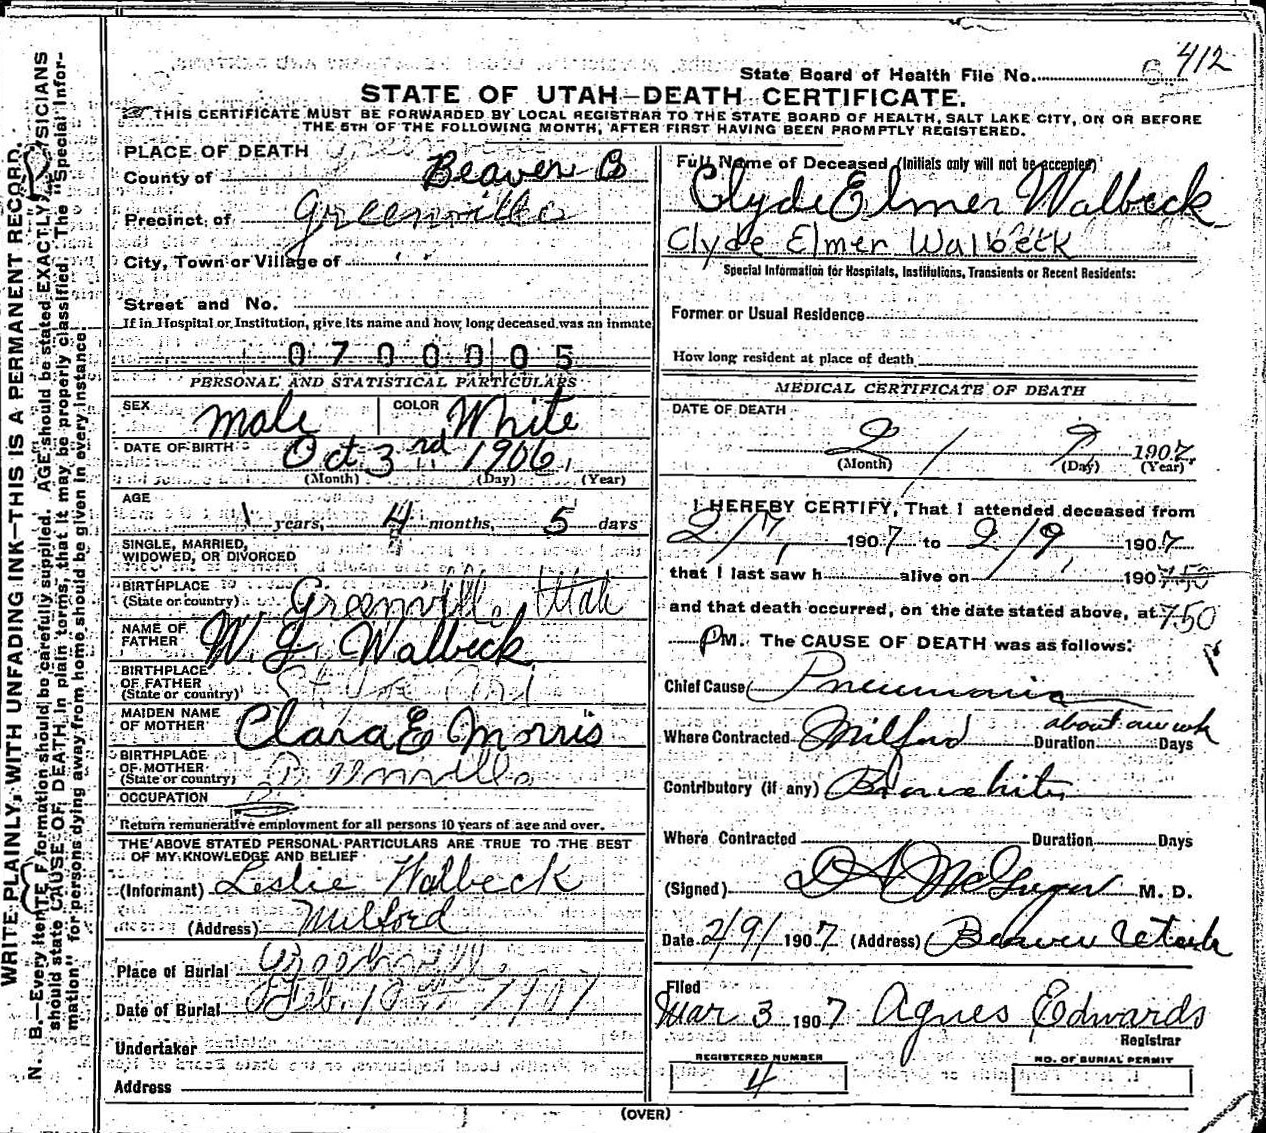 State Board of Health File No. 412
STATE OF UTAH—DEATH CERTIFICATE.
THIS CERTIFICATE MUST BE FORWARDED BY LOCAL REGISTRAR TO THE STATE BOARD OF HEALTH, SALT LAKE CITY, ON OR BEFORE
THE 5TH OF THE FOLLOWING MONTH, AFTER FIRST HAVING BEEN PROMPTLY REGISTERED.
WRITE PLAINLY, WITH UNFADING INK—THIS IS A PERMANENT RECORD.
N. B.—Every item of information should be carefully supplied. AGE should be stated EXACTLY. PHYSICIANS
should state CAUSE OF DEATH in plain terms, that it may be properly classified. The "Special Infor-
mation" for persons dying away from home should be given in every instance.
PLACE OF DEATH
County of Beaver
Precinct of Greenville
City, Town or Village of " "
Street and No.
If in Hospital or Institution, give its name and how long deceased was an inmate
0700005
PERSONAL AND STATISTICAL PARTICULARS
SEX Male COLOR White
DATE OF BIRTH Oct 3rd 1906
(Month) (Day) (Year)
AGE
1 years, 4 months, 5 days
SINGLE, MARRIED,
WIDOWED, OR DIVORCED
BIRTHPLACE
(State or country) Greenville Utah
NAME OF
FATHER W. J. Walbeck
BIRTHPLACE
OF FATHER
(State or country)
MAIDEN NAME
OF MOTHER Clara E Morris
BIRTHPLACE
OF MOTHER
(State or country) Greenville
OCCUPATION
Return remunerative employment for all persons 10 years of age and over.
THE ABOVE STATED PERSONAL PARTICULARS ARE TRUE TO THE BEST
OF MY KNOWLEDGE AND BELIEF
(Informant) Leslie Walbeck
(Address) Milford
Place of Burial Greenville
Date of Burial Feb. 10th 1907
Undertaker
Address
Full Name of Deceased (Initials only will not be accepted)
Clyde Elmer Walbeck
Clyde Elmer Walbeck
Special Information for Hospitals, Institutions, Transients or Recent Residents:
Former or Usual Residence
How long resident at place of death
MEDICAL CERTIFICATE OF DEATH
DATE OF DEATH
2 / 9 1907
(Month) (Day) (Year)
I HEREBY CERTIFY, That I attended deceased from
2/7, 1907 to 2/9, 1907
that I last saw h alive on 190 750
and that death occurred, on the date stated above, at 7.50
P M. The CAUSE OF DEATH was as follows:
Chief Cause Pneumonia
Where Contracted Milford Duration about one wk Days
Contributory (if any) Bronchitis
Where Contracted Duration Days
(Signed) D A McGregor M. D.
Date 2/9/ 1907 (Address) Beaver Utah
Filed
Mar 3 1907 Agnes Edwards
Registrar
REGISTERED NUMBER
4
NO. OF BURIAL PERMIT
(OVER)